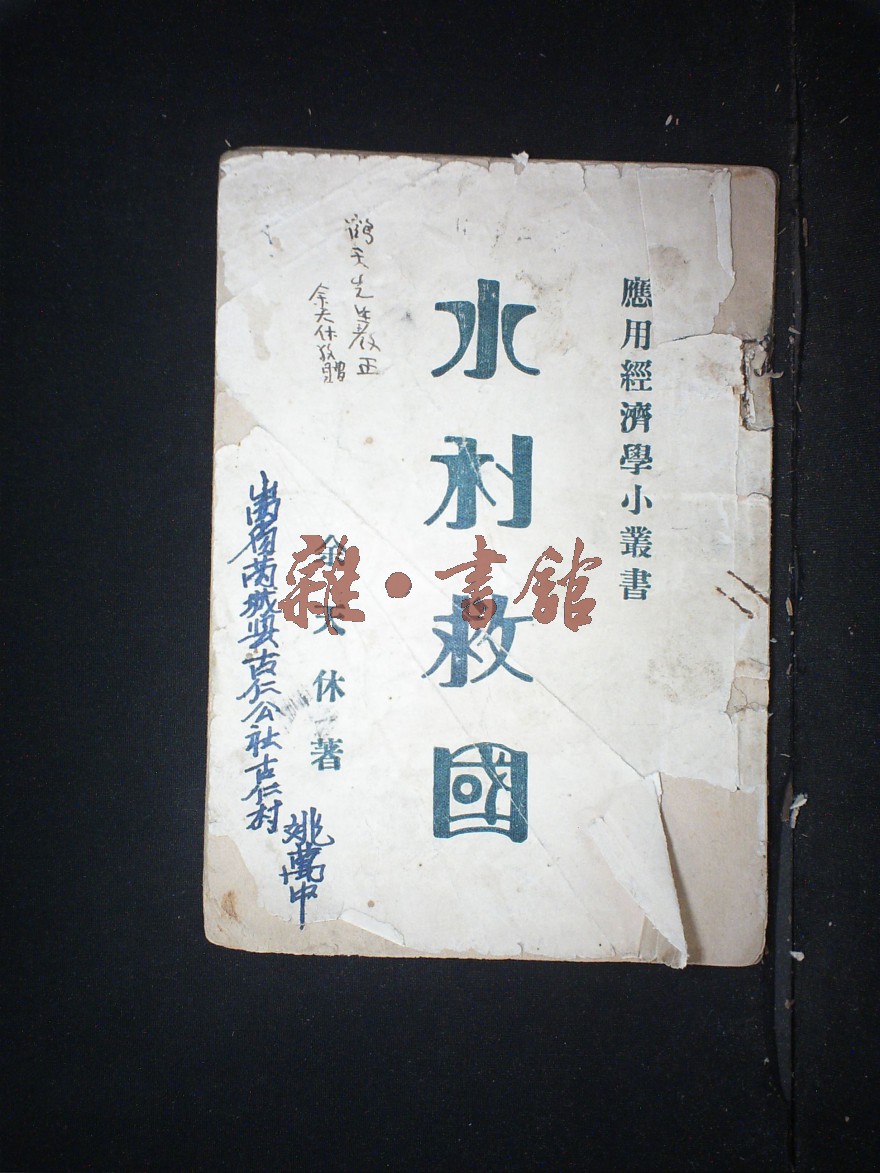 應用經濟學小叢書
水利救國
鶴天先生教正
余天休敬贈
余天休著
芮城县古仁公社古仁村
姚萬中
雜•書館